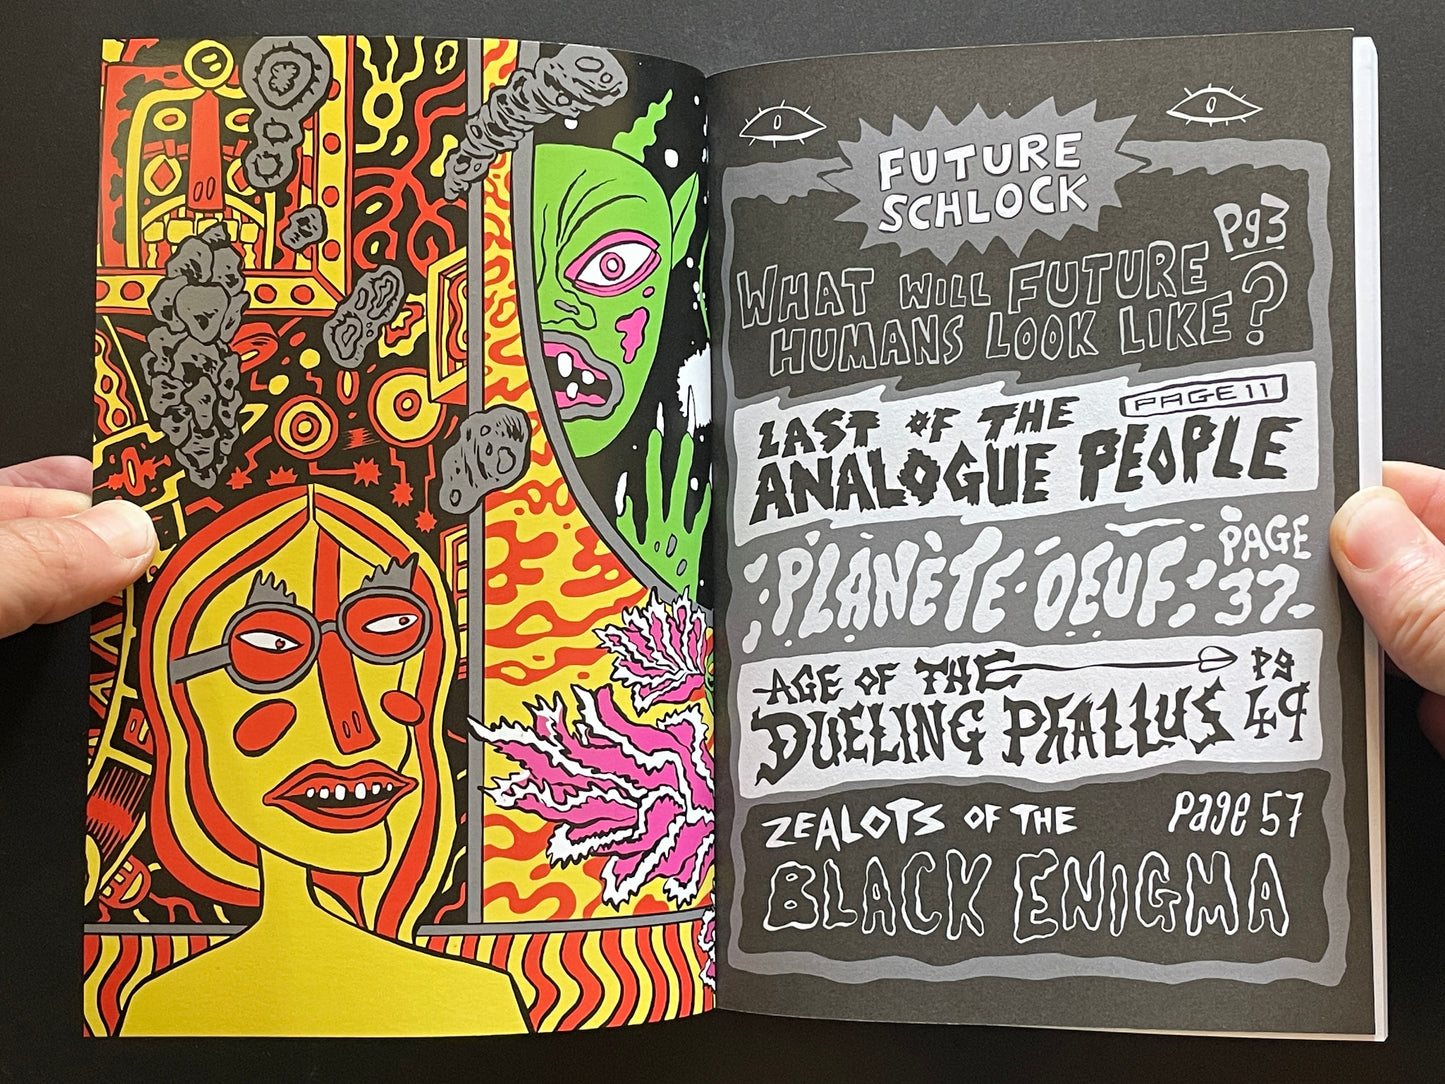 FUTURE
SCHLOCK
Pg3
WHAT WILL FUTURE
HUMANS LOOK LIKE?
PAGE 11
LAST OF THE
ANALOGUE PEOPLE
PLANÈTE-OEUF
PAGE
37
AGE OF THE
DUELING PHALLUS
Pg
49
ZEALOTS OF THE
Page 57
BLACK ENIGMA